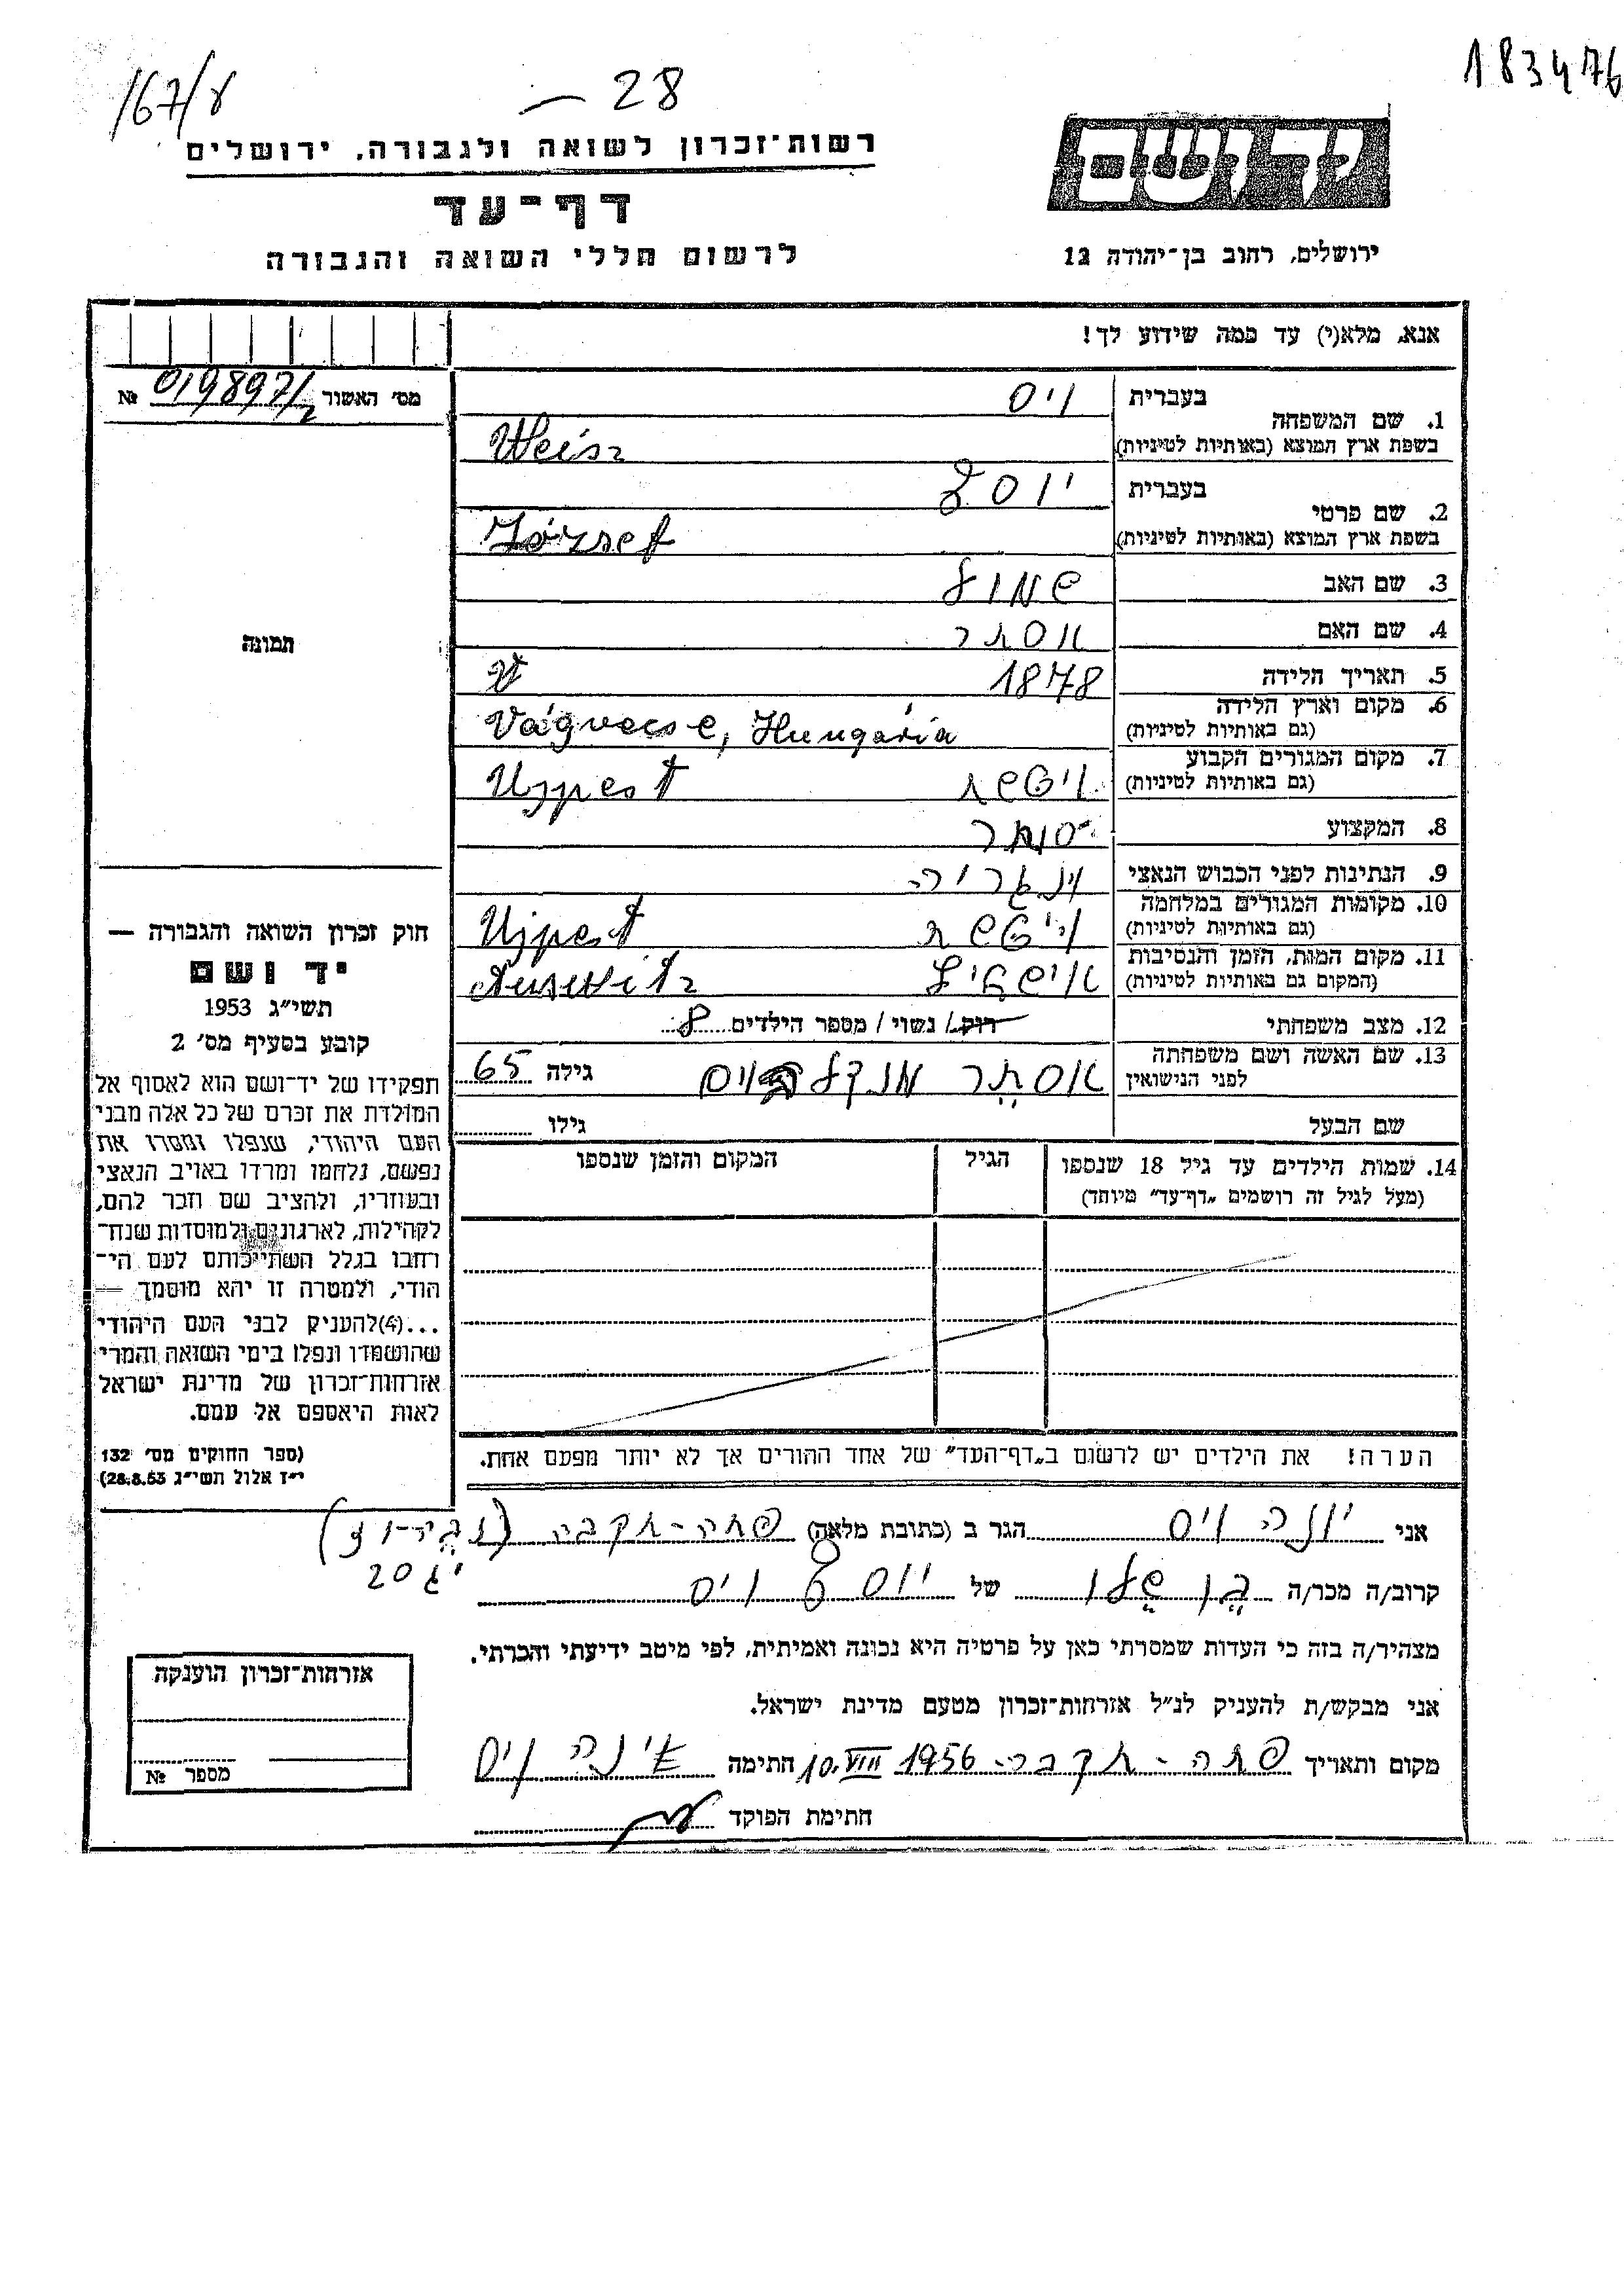 183476
167/8
— 28
יד ושם
רשות־זכרון לשואה ולגבורה, ירושלים
דף־עד
לרשום חללי השואה והגבורה
ירושלים, רחוב בן־יהודה 12
אנא, מלא(י) עד כמה שידוע לך!
מס' האשור 019897/2 №
תמונה
1. שם המשפחה בעברית ויס
בשפת ארץ המוצא (באותיות לטיניות) Weisz
2. שם פרטי בעברית יוסף
בשפת ארץ המוצא (באותיות לטיניות) József
3. שם האב שמואל
4. שם האם אסתר
5. תאריך הלידה 1878
6. מקום וארץ הלידה
(גם באותיות לטיניות) Vágvecse, Hungária
7. מקום המגורים הקבוע
(גם באותיות לטיניות) Ujpest
8. המקצוע סוחר
9. הנתינות לפני הכבוש הנאצי
10. מקומות המגורים במלחמה
(גם באותיות לטיניות) Ujpest
11. מקום המות, הזמן והנסיבות
(המקום גם באותיות לטיניות) אושביץ Auswitz
12. מצב משפחתי רוק/ נשוי / מספר הילדים 8
13. שם האשה ושם משפחתה
לפני הנישואין אסתר גילה 65
שם הבעל גילו
14. שמות הילדים עד גיל 18 שנספו הגיל המקום והזמן שנספו
(מעל לגיל זה רושמים „דף־עד" מיוחד)
הערה! את הילדים יש לרשום ב„דף־העד" של אחד ההורים אך לא יותר מפעם אחת.
חוק זכרון השואה והגבורה —
יד ושם
תשי"ג 1953
קובע בסעיף מס' 2
תפקידו של יד־ושם הוא לאסוף אל
המולדת את זכרם של כל אלה מבני
העם היהודי, שנפלו ומסרו את
נפשם, נלחמו ומרדו באויב הנאצי
ובעוזריו, ולהציב שם וזכר להם,
לקהילות, לארגונים ולמוסדות שנח־
רחבו בגלל השתייכותם לעם הי־
הודי, ולמטרה זו יהא מוסמך —
...(4)להעניק לבני העם היהודי
שהושמדו ונפלו בימי השואה והמרי
אזרחות־זכרון של מדינת ישראל
לאות היאספם אל עמם.
(ספר החוקים מס' 132
י"ז אלול תשי"ג 28.8.53)
אני יונה ויס הגר ב (כתובת מלאה) פתח-תקבה
קרוב/ה מכר/ה בן שלו של יוסף ויס
מצהיר/ה בזה כי העדות שמסרתי כאן על פרטיה היא נכונה ואמיתית, לפי מיטב ידיעתי והכרתי.
אני מבקש/ת להעניק לנ"ל אזרחות־זכרון מטעם מדינת ישראל.
מקום ותאריך פתח-תקבה- 10.VIII 1956 חתימה יונה ויס
חתימת הפוקד
אזרחות־זכרון הוענקה
מספר №